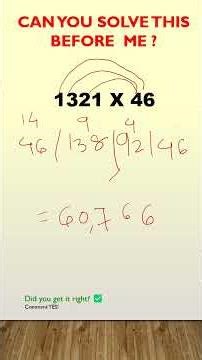 CAN YOU SOLVE THIS
BEFORE ME ?
1321 X 46
14 9 4
46/138/92/46
= 60,766
Did you get it right? ✅
Comment YES!